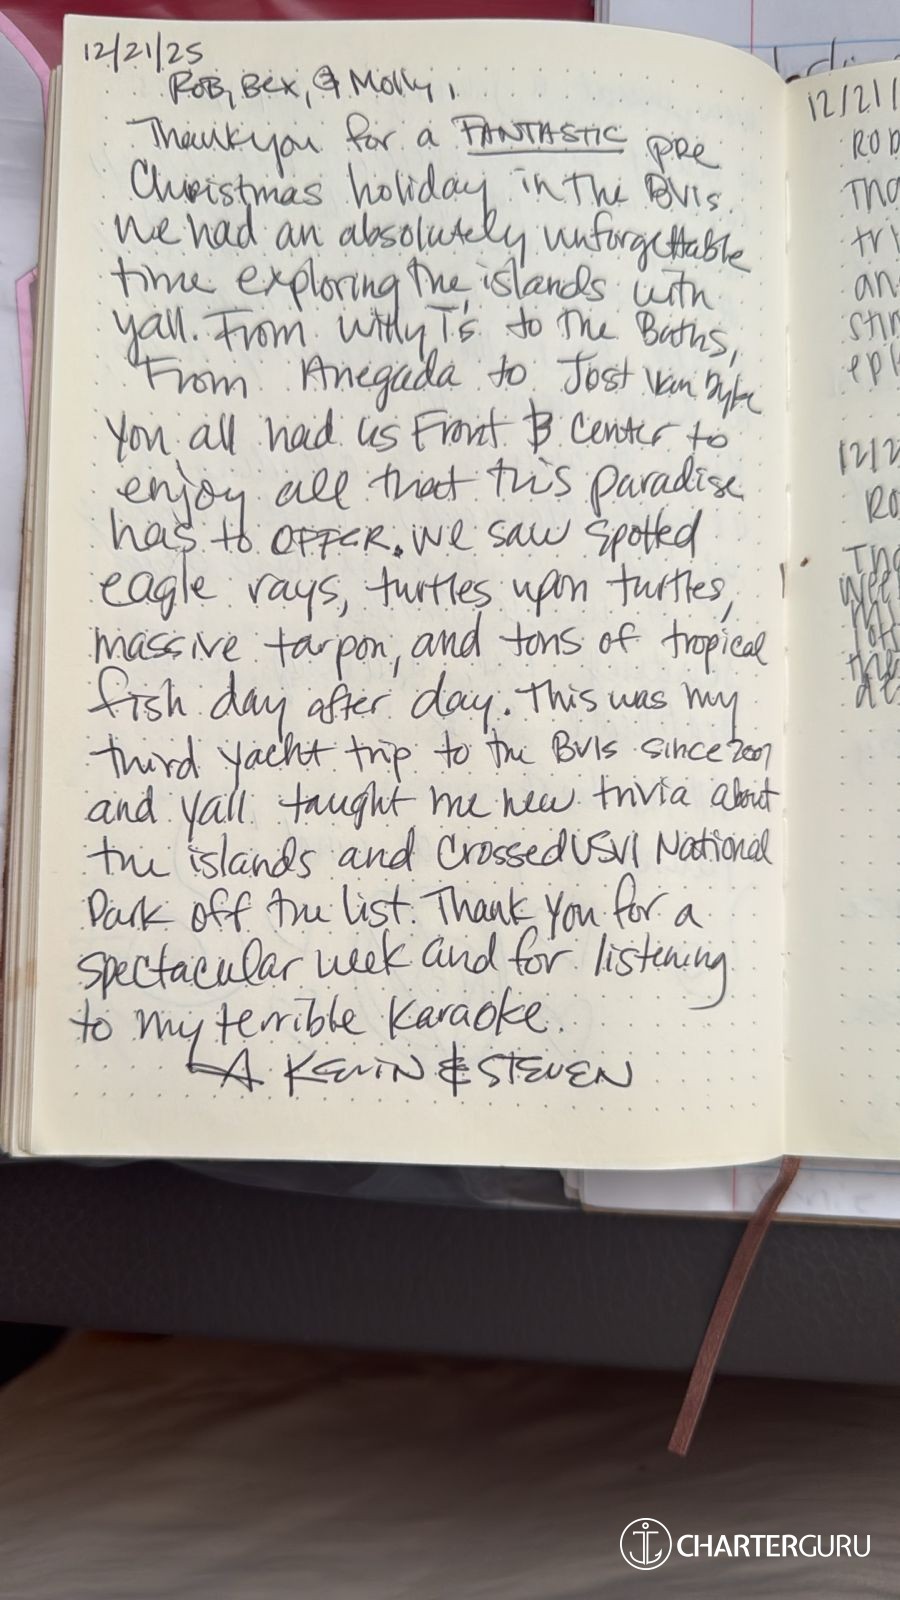 12/21/25
Rob, Bex, & Molly,
Thank you for a FANTASTIC pre
Christmas holiday in the BVIs.
We had an absolutely unforgettable
time exploring the islands with
yall. From Willy T's to the Baths,
From Anegada to Jost Van Dyke
you all had us Front & Center to
enjoy all that this paradise
has to OFFER. We saw spotted
eagle rays, turtles upon turtles,
massive tarpon, and tons of tropical
fish day after day. This was my
third yacht trip to the BVIs since 2007
and yall taught me new trivia about
the islands and crossed USVI National
Park off the list. Thank you for a
spectacular week and for listening
to my terrible karaoke.
KEVIN & STEVEN
12/21/
ROB
12/2
CHARTERGURU